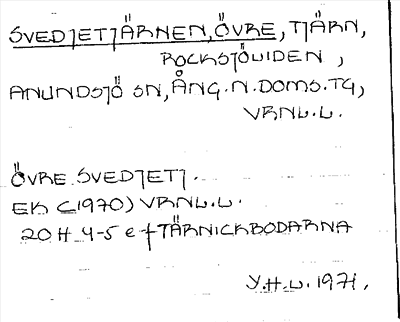 SVEDJETJÄRNEN, ÖVRE, TJÄRN,
ROCKSJÖLIDEN,
ANUNDSJÖ SN, ÅNG. N. DOMS. TG,
VRNL.L.
ÖVRE SVEDJETJ.
EK (1970) VRNL.L.
20 H 4-5 e f TÄRNICKBODARNA
Y.H.L. 1971.